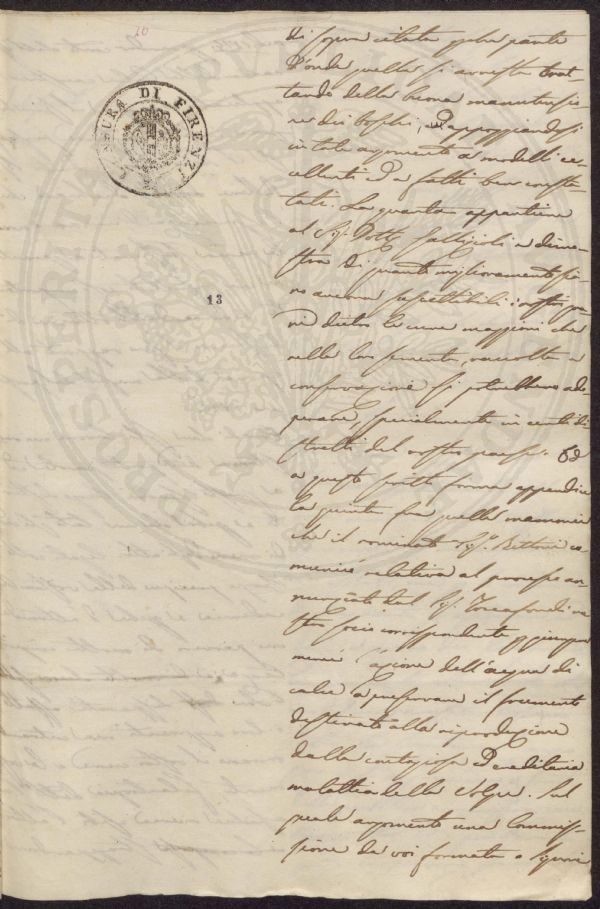 10
CENSURA DI FIRENZE
13
di sopra citate per parte
d'onde quella si arresta trat-
tando della buona manutensio
ne dei boschi, ed appoggiandosi
in tale argomento a modelli ec-
cellenti ed a fatti ben consta-
tati. La quarta appartiene
al Sig. Dott. Gallizioli e dimo-
stra di quanto miglioramento sie-
no ancora suscettibili i nostri
dietro le cure maggiori che
nella loro sementa, raccolta e
conservazione si potrebbero ado-
perare, specialmente in certi di-
stretti del nostro paese. Ed
a questo scritto forma appendice
la quinta fu quella memoria
che il nominato Sig. Bettoni co-
municò relativa al processo an-
nunziato dal Sig. no-
stro socio corrispondente
l'azione dell'acqua di
calce a preservare il frumento
destinato alla riproduzione
dalla contagiosa ed ereditaria
malattia della Volpe. Sul
quale argomento una Commis-
sione da voi formata e